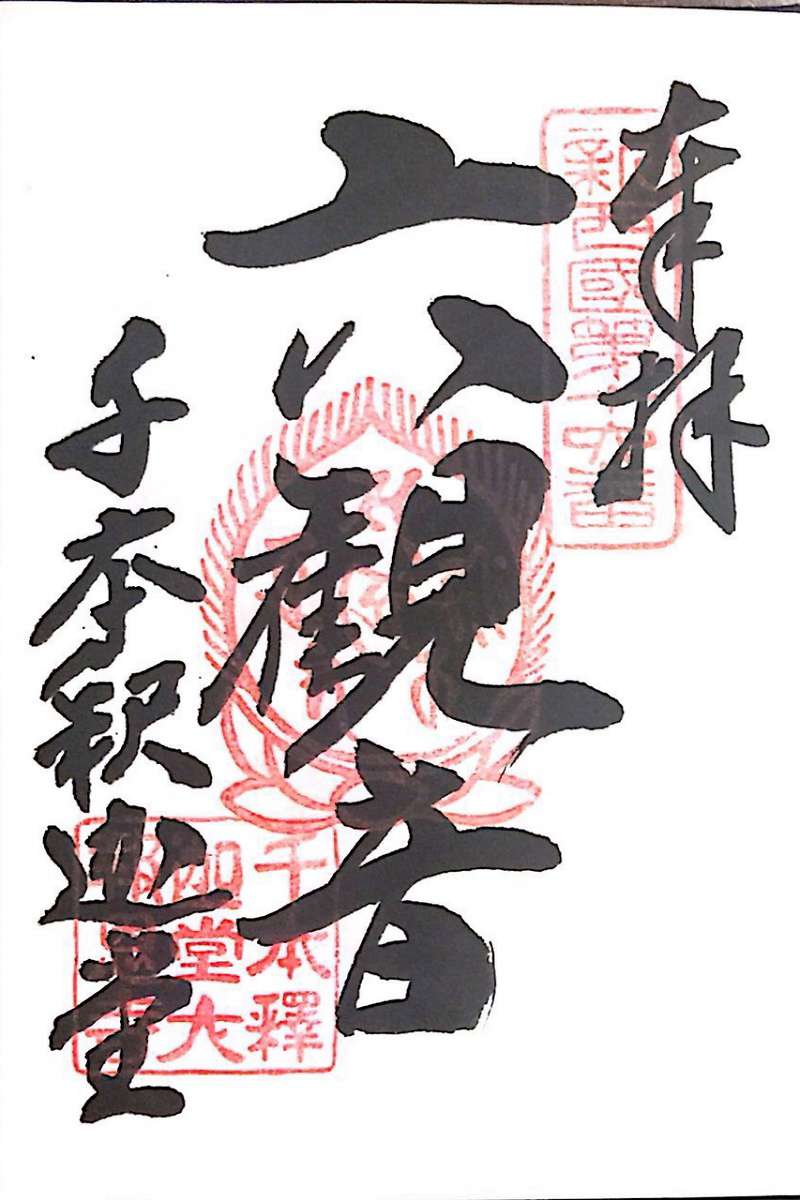 奉拝
新西國第十六番
六観音
千本釈迦堂
千本釋
迦堂大
報恩寺